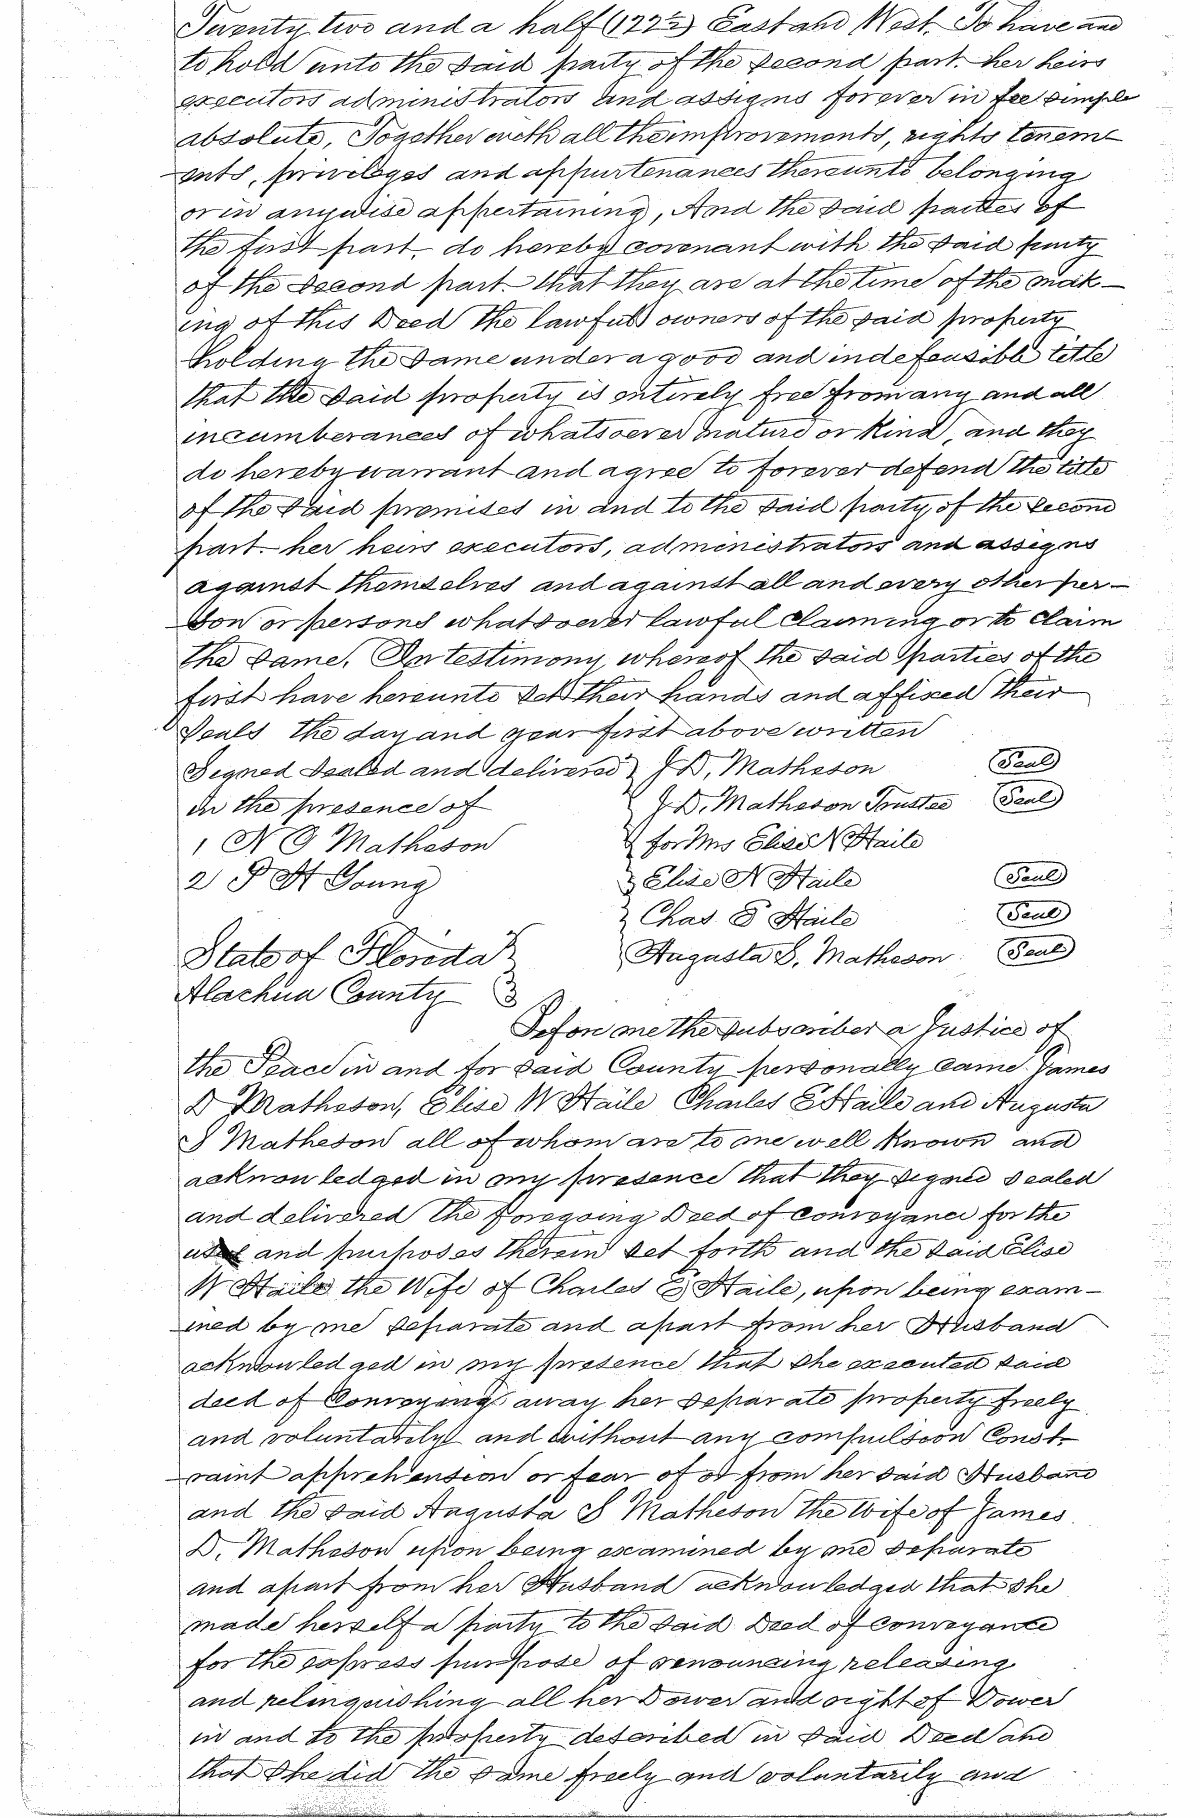 Twenty two and a half (122½) East and West. To have and
to hold unto the said party of the second part. her heirs
executors administrators and assigns forever in fee simple
absolute, Together with all the improvements, rights tenem
ents, privileges and appurtenances thereunto belonging
or in anywise appertaining, And the said parties of
the first part, do hereby covenant with the said party
of the second part. that they are at the time of the mak-
ing of this Deed the lawful owners of the said property
holding the same under a good and indefeasible title
that the said property is entirely free from any and all
incumberances of whatsoever nature or kind, and they
do hereby warrant and agree to forever defend the title
of the said premises in and to the said party of the second
part. her heirs executors, administrators and assigns
against themselves and against all and every other per-
son or persons whatsoever lawful claiming or to claim
the same. In testimony whereof the said parties of the
first have hereunto set their hands and affixed their
seals the day and year first above written
Signed sealed and delivered } J D, Matheson (Seal)
in the presence of } J. D. Matheson Trustee (Seal)
1 N G Matheson } for Mrs Elise N Haile
2 P H Young } Elise N Haile (Seal)
} Chas. E Haile (Seal)
State of Florida } } Augusta S, Matheson (Seal)
Alachua County }
Before me the subscriber a Justice of
the Peace in and for said County personally came James
D Matheson, Elise W Haile Charles E Haile and Augusta
S Matheson all of whom are to me well known and
acknowledged in my presence that they signed sealed
and delivered the foregoing Deed of conveyance for the
uses and purposes therein set forth and the said Elise
W Haile the Wife of Charles E Haile, upon being exam-
ined by me separate and apart from her Husband
acknowledged in my presence that she executed said
deed of Conveying away her separate property freely
and voluntarily and without any compulsion Const-
raint apprehension or fear of or from her said Husband
and the said Augusta S Matheson the Wife of James
D. Matheson upon being examined by me separate
and apart from her Husband acknowledged that she
made herself a party to the said Deed of conveyance
for the express purpose of renouncing releasing
and relinquishing all her Dower and right of Dower
in and to the property described in said Deed and
that she did the same freely and voluntarily and